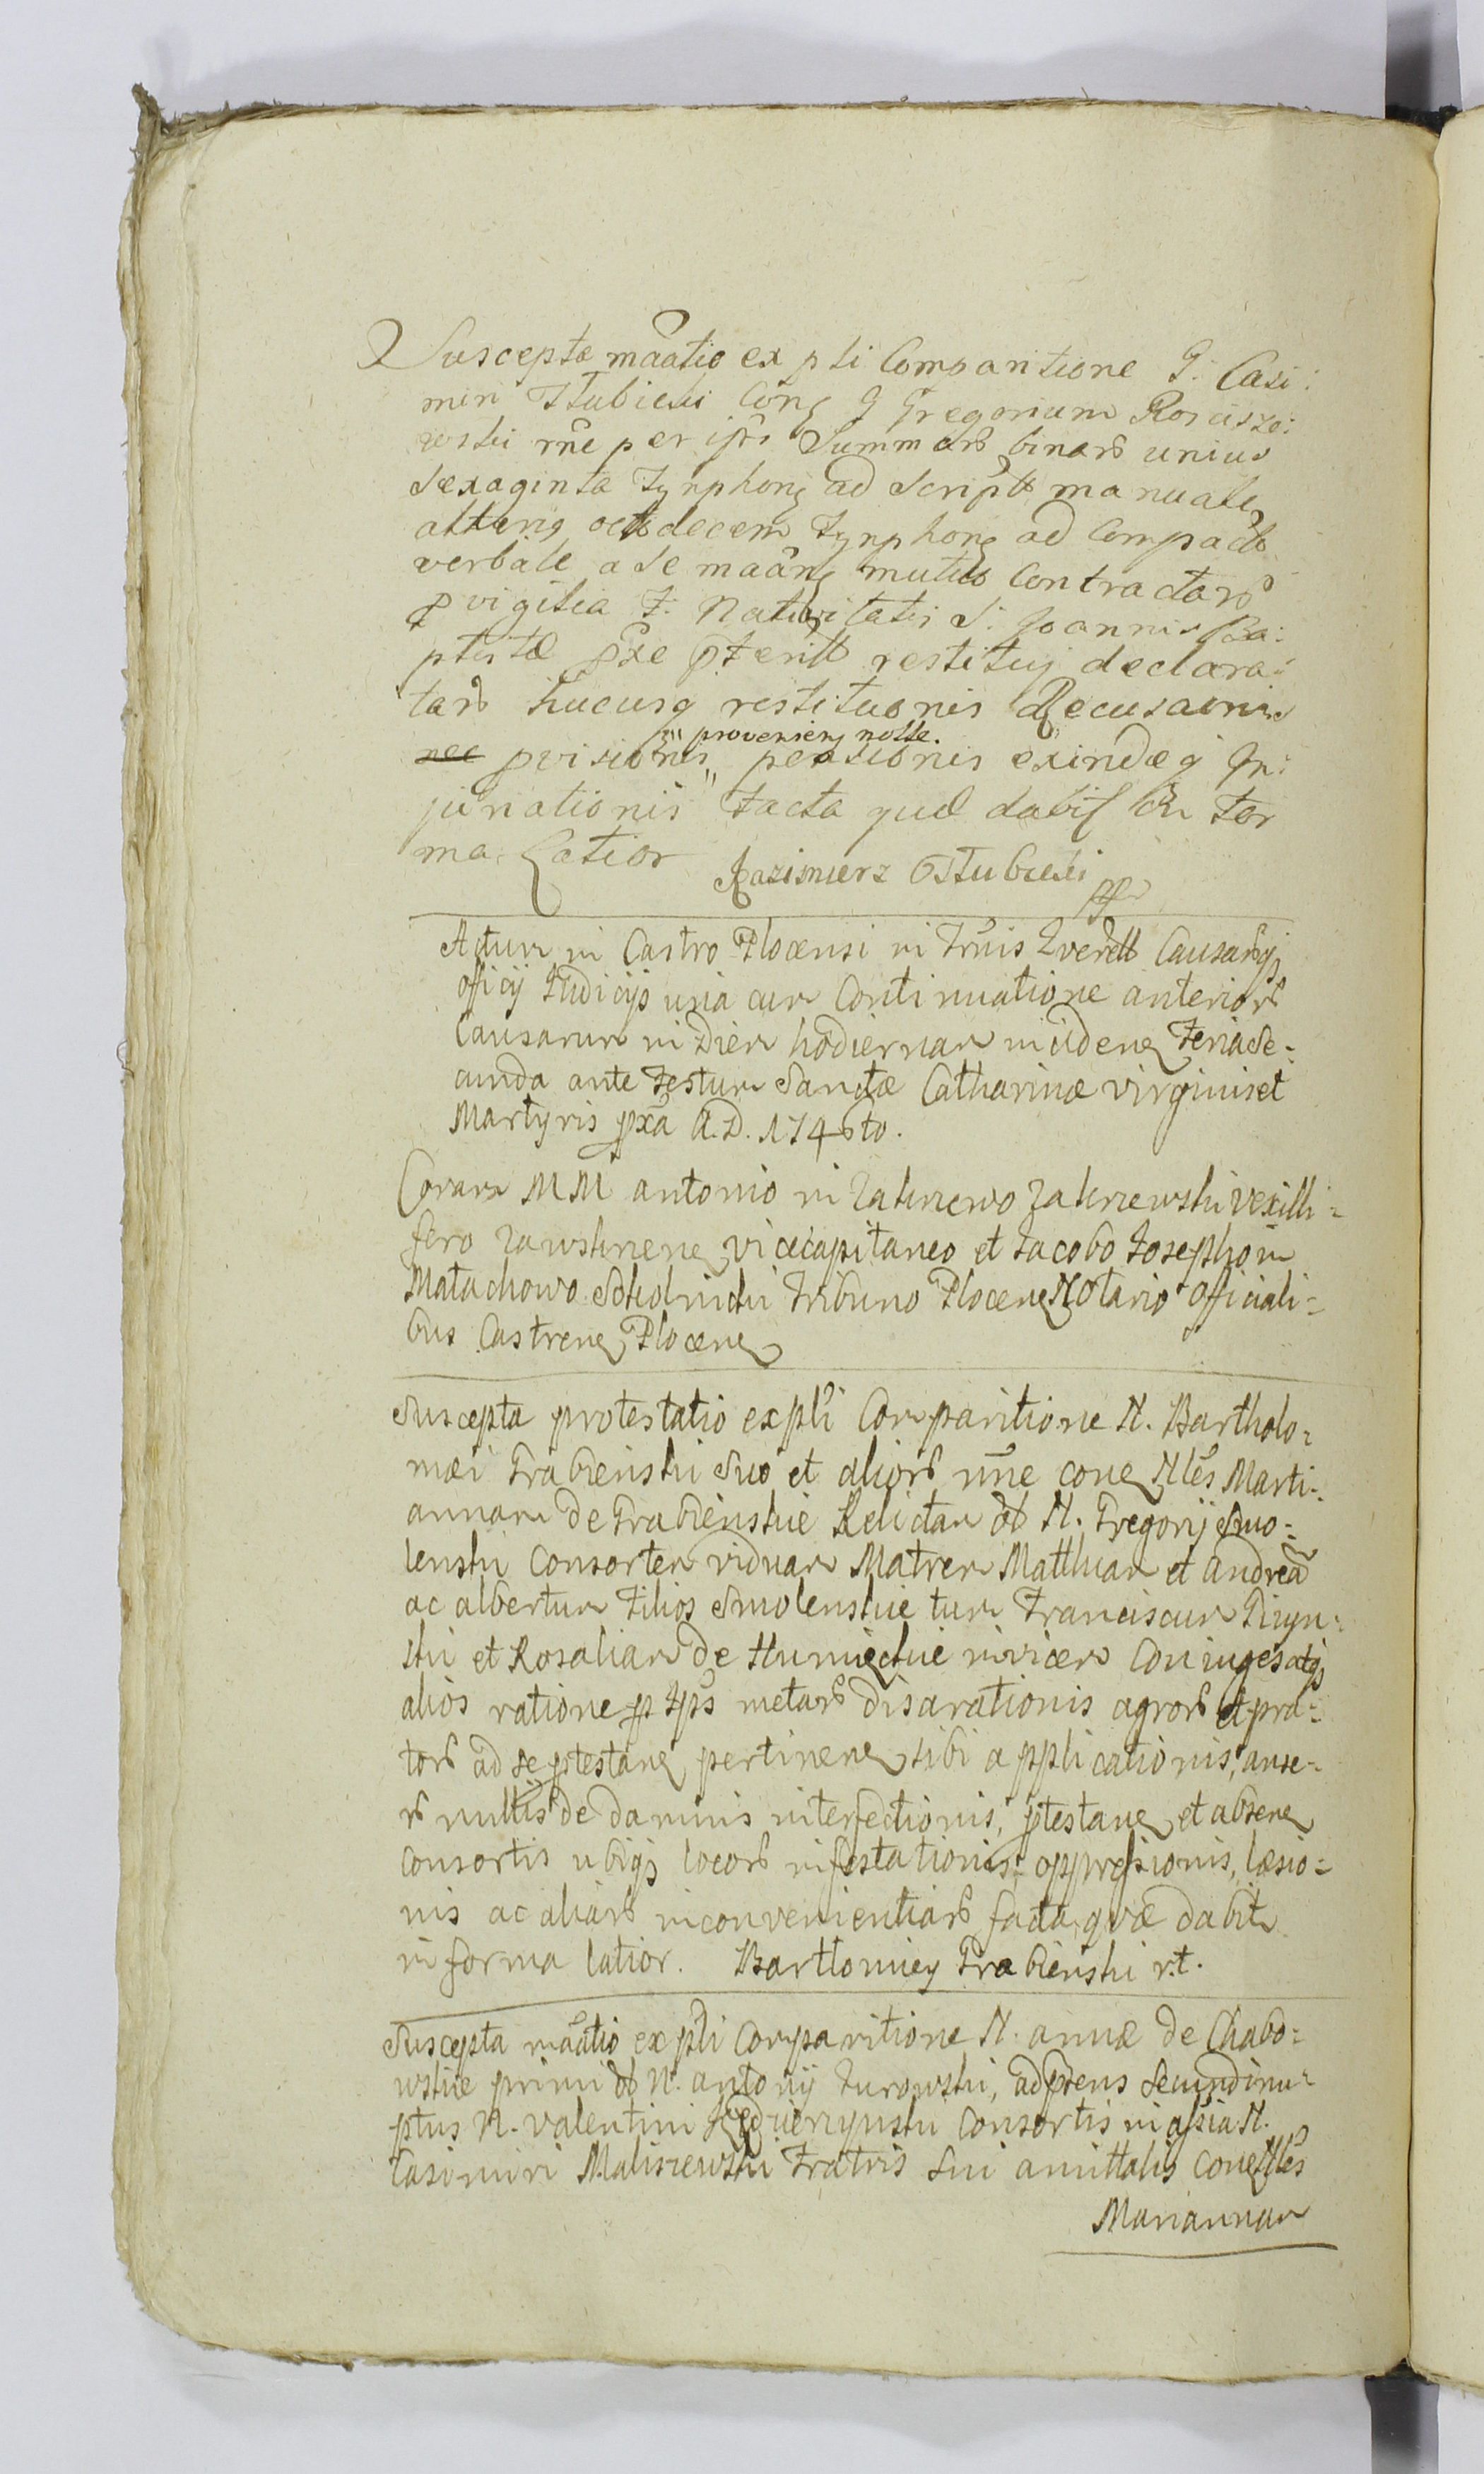 Suscepta mãatio ex pti Comparitione G. Casi:
miri Ttubicki Conq G Gregorium Rosciszo:
wski rñe per ips Summarũ binarũ unius
Sexaginta Tynphonq ad Script manuale
alterig octodecem Tynphonq ad Compact
verbale a se maãnq mutuo Contractarũ
p vigilia F. Nativitatis S. Joannis Ba:
ptistæ pxe pterit restituj declara:
tarũ hucusq restituonis Recusaonis
provenienq nolle.
nec pvisionis pensionis exindeq In:
jurationis facta quæ dabit in for
ma Latior Kazimierz Ttubicki
Actum in Castro Plocensi in Trñis Querell Causarqs
officij Iudicijs una cum Continuatione anteriorũ
Causarum in Diem hodiernam incidenq Feria Se=
cunda ante Festum Sanctæ Catharinæ virginis et
Martyris pxa A.D. 1746to.
Coram MM antonio in Zakrzewo Zakrzewski vexilli=
fero Zawskrzenenq vicecapitaneo et Jacobo Josepho in
Małachowo Skolnicki Tribuno Plocenq Notario officiali=
bus Castrenq Plocenq
Suscepta protestatio ex pti Comparitione N. Bartholo=
mæi Grabienski suo et aliorũ nñe conq Nles Marti=
annam de Grabienskie Relictam ol N. Gregorij Smo=
lenski Consortem viduam Matrem Matthiam et Andreã
ac albertum Filios Smolenskie tum Franciscum Giżyn=
ski et Rosaliam de Humięckie invicem Coniuges atqs
alios ratione p Ips metarũ disarationis agrorũ et pra=
torũ ad se ptestanq pertinenq sibi applicationis, anse=
rũ multis de damnis interfectionis, ptestanq et absenq
consortis ubiqs locorũ infestationis, oppressionis, læsio=
nis ac aliarũ inconvenientiarũ facta, quæ dabit
in forma latior. Bartłomiey Grabienski r.t.
Suscepta mãatio ex pti Comparitione N. annæ de Chabo=
wskie primi ol N. antonij Żurowski, ad præns secundinu=
ptus N. valentini consortis in assia N.
Casimiri Maliszewski Fratris sui amittalis conq Nles
Mariannam